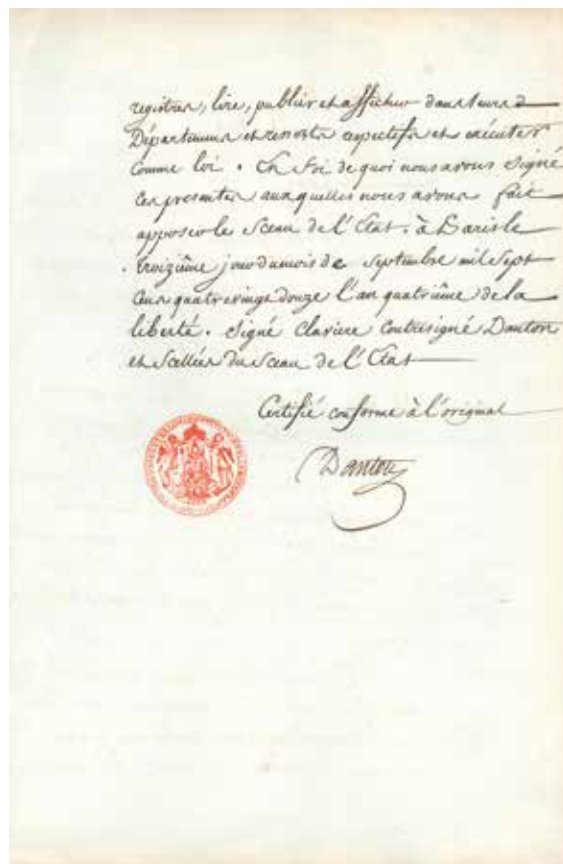 registres, lire, publier et afficher dans leurs
Départemens et ressorts respectifs et exécuter
comme loi. En foi de quoi nous avons signé
ces presentes auxquelles nous avons fait
apposer le Sceau de l'Etat. à Paris le
treizième jour du mois de Septembre mil Sept
cent quatrevingt douze l'an quatrième de la
liberté. Signé Claviere contresigné Danton
et scellées du Sceau de l'Etat
Certifié conforme à l'original
Danton